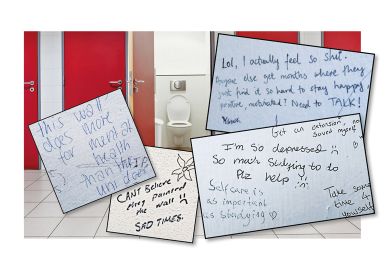 this wall
does more
for mental
health
than the
uni does
CANT Believe
they painted
the wall !!
SAD TIMES.
Lol, I actually feel so shit.
Anyone else get months where they
just find it so hard to stay happy,
positive, motivated? Need to TALK!
Get an extension, no
I'm so depressed
So much Studying to do
Plz help
Self care is
as important
as studying
Take some
time 4
yourself